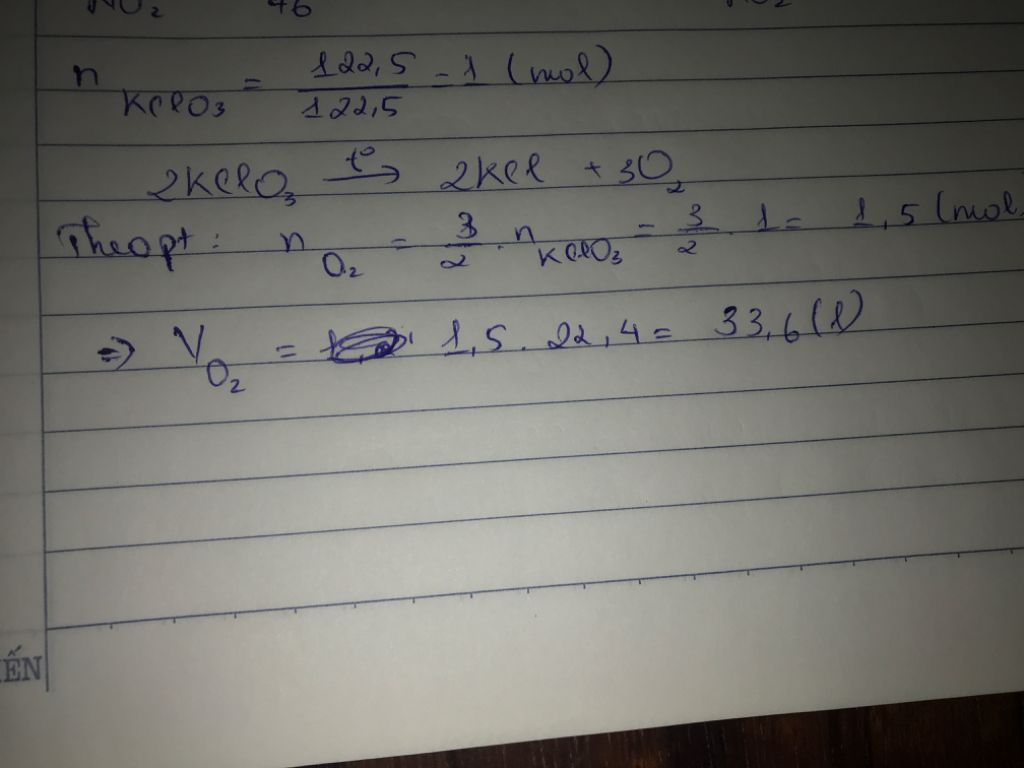 NO₂ 46
n KClO₃ = 122,5 / 122,5 = 1 (mol)
2KClO₃ t° → 2KCl + 3O₂
Theo pt : n O₂ = 3/2 . n KClO₃ = 3/2 . 1 = 1,5 (mol
=> V O₂ = 1,5 . 22,4 = 33,6 (l)
ẾN